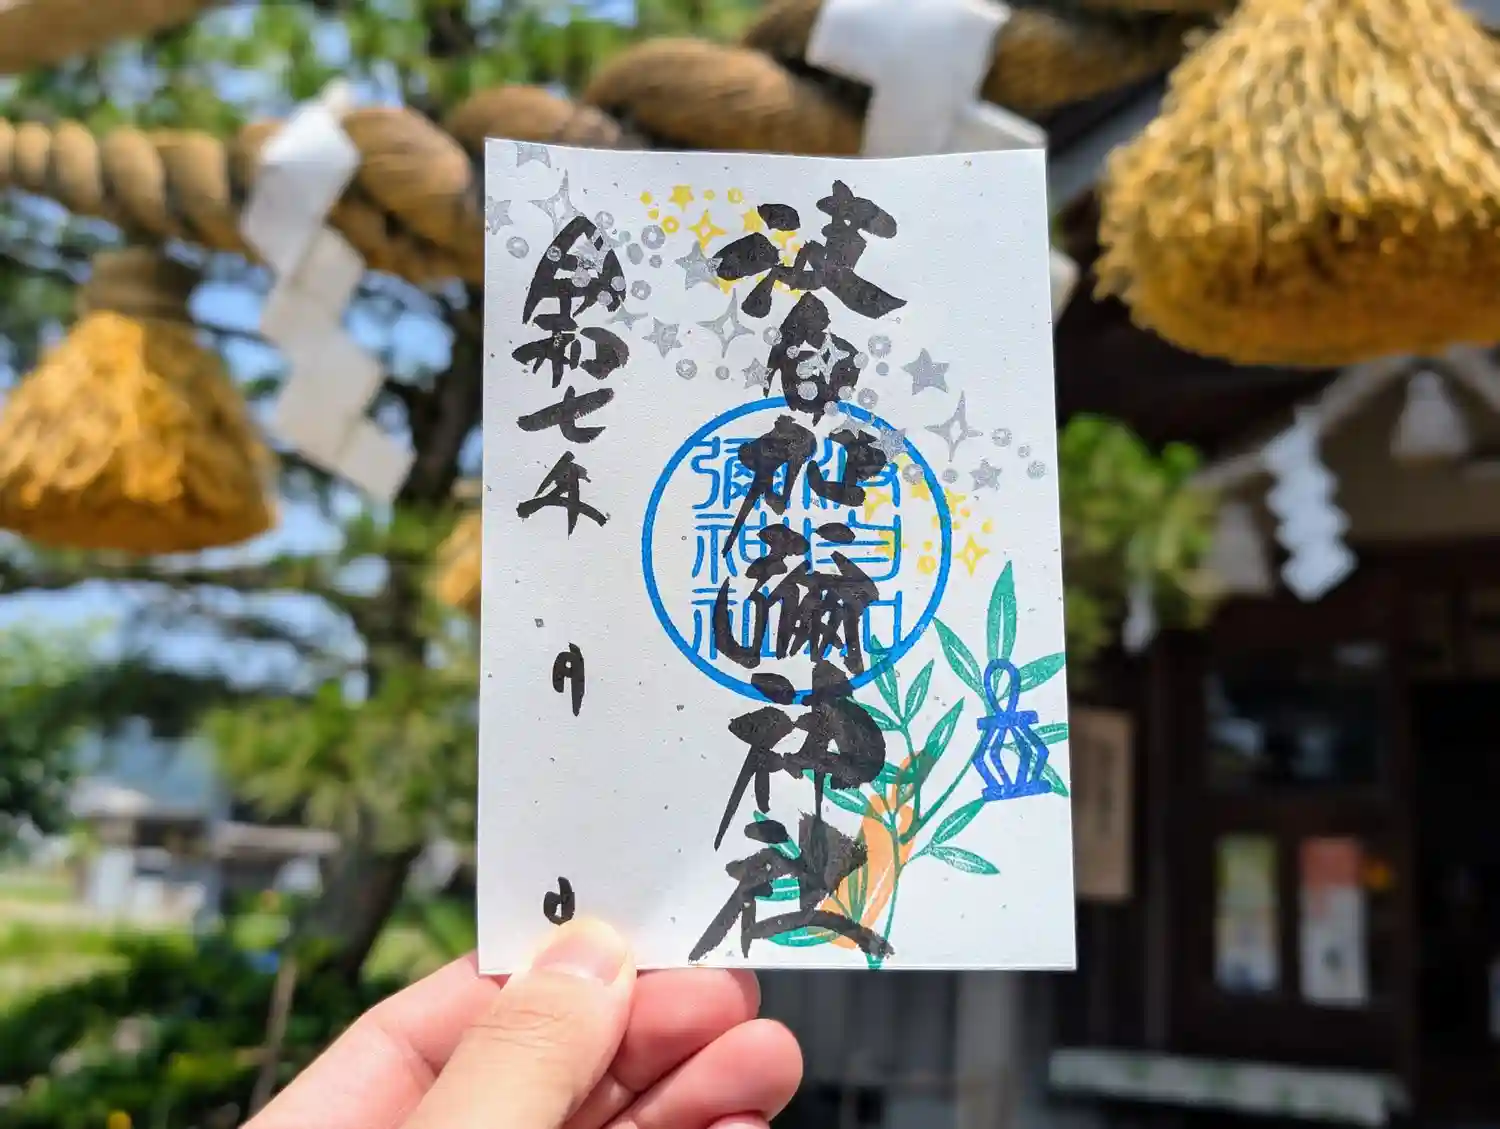 波自加彌神社
波自加
彌神社
令和七年 月 日